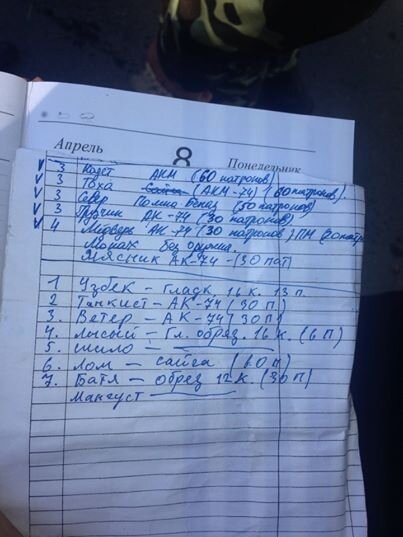 Апрель 8 Понедельник
3 Кадет АКМ (60 патронов)
3 Тоха Сайга (АКМ-74) (60 патронов).
3 Север (50 патронов)
3 АК-74 (30 патронов)
4 Медведь АК-74 (30 патронов) ПМ
Монах без оружия.
Мясник АК-74-(30 пат)
1 Узбек - гладк. 16 к. 13 п.
2 Танкист - АК-74 (30 П)
3. Ветер - АК-74 (30 П)
4. Лысый - Гл. обрез. 16 к. (6 П)
5. Шило -
6. Лом - сайга (60 П)
7. Батя - обрез 12 к. (30 П)
Мангуст